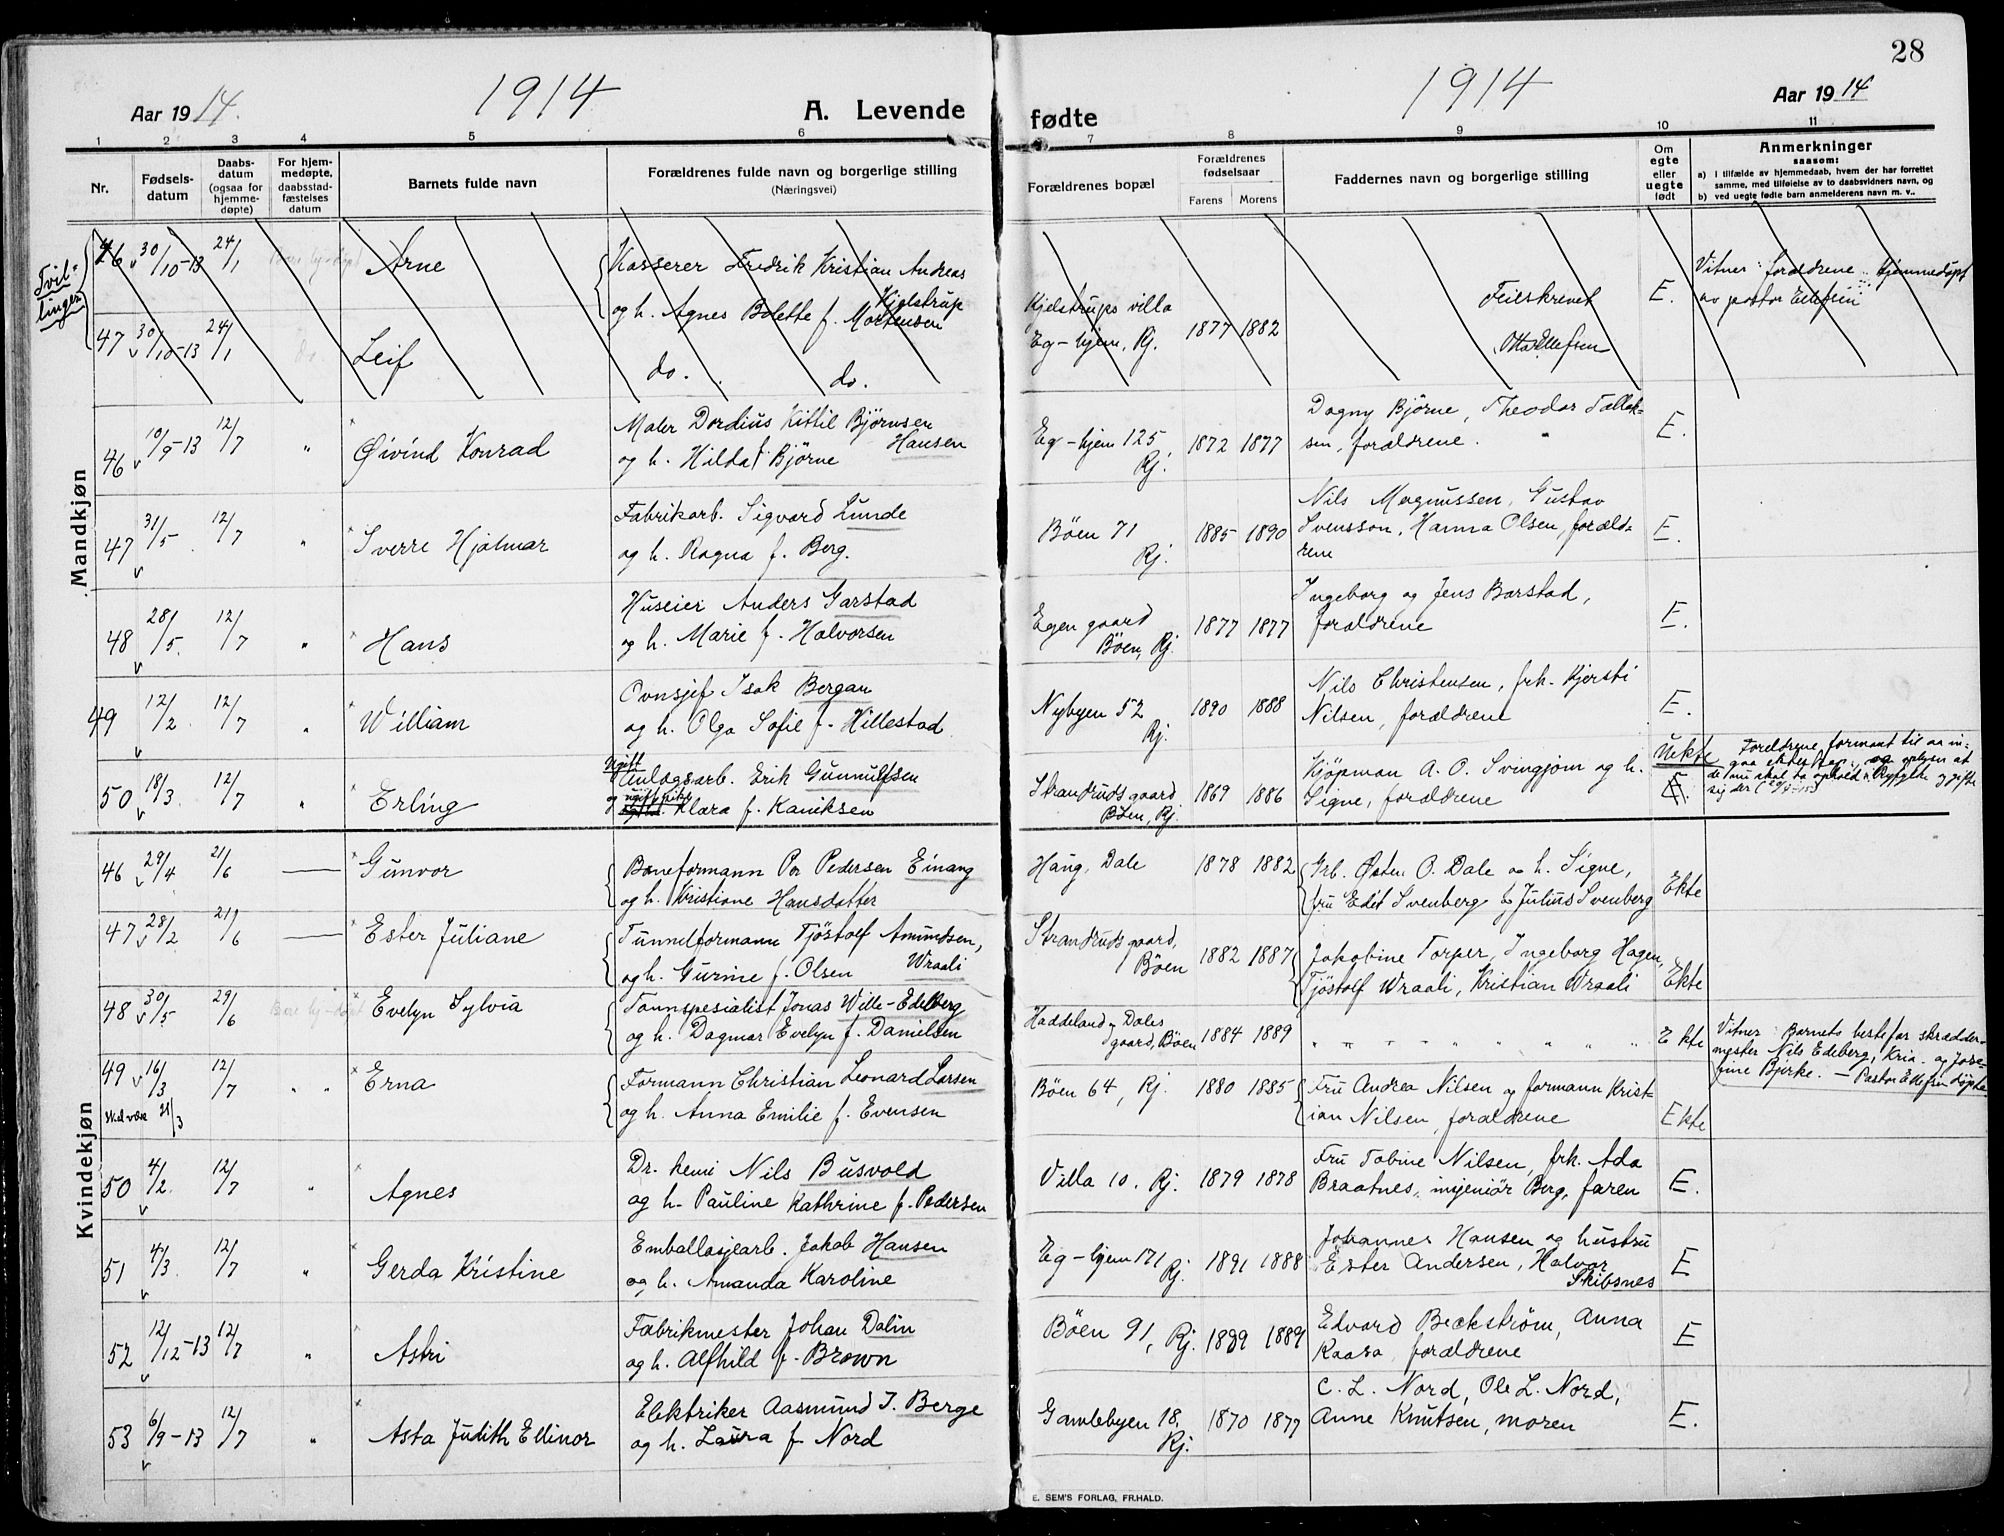 28
Aar 1914.
1914
A. Levende
fødte
1914
Aar 1914
1 2 3 4 5 6 7 8 9 10 11
Nr.
Fødsels-
datum
Daabs-
datum
(ogsaa for
hjemme-
døpte)
For hjem-
medøpte,
daabsstad-
fæstelses
datum
Barnets fulde navn
Forældrenes fulde navn og borgerlige stilling
(Næringsvei)
Forældrenes bopæl
Forældrenes
fødselsaar
Farens Morens
Faddernes navn og borgerlige stilling
Om
egte
eller
uegte
født
Anmerkninger
saasom:
a) I tilfælde av hjemmedaab, hvem der har forrettet
samme, med tilføielse av to daabsvidners navn, og
b) ved uegte fødte barn anmelderens navn m. v..
Tvil-
linger
Mandkjøn
46 30/10-13 24/1 Arne
Kasserer Fredrik Kristian Andreas
Kjelstrup
og h. Agnes Bolette f. Mortensen
Kjelstrups villa
Eg-hjem, Rj. 1877 1882
Feilskrevet
Otto Ellefsen
E.
Vitner: forældrene. Hjemmedøpt
av pastor Ellefsen
47 30/10-13 24/1 do Leif
do. do.
46 10/9-13 12/7 " Øivind Konrad
Maler Dordius Kittil Bjørnsen
Hansen
og h. Hilda f. Bjørne
Eg-hjem 125
Rj. 1872 1877
Dagny Bjørne, Theodor Tollak-
sen, forældrene.
E.
47 31/5 12/7 " Sverre Hjalmar
Fabrikarb. Sigvard Lunde
og h. Ragna f. Berg.
Böen 71
Rj. 1885 1890
Nils Magnussen, Gustav
Svensson, Hanna Olsen, foræld-
rene
E.
48 28/5. 12/7 " Hans
Huseier Anders Garstad
og h. Marie f. Halvorsen
Egen gaard
Böen, Rj. 1877 1877
Ingeborg og Jens Barstad,
forældrene
E.
49 12/2 12/7 " William
Ovnsjef Isak Bergan
og h. Olga Sofie f. Hillestad
Nybyen 52
Rj. 1890 1888
Nils Christensen, frk. Kjersti
Nilsen, forældrene
E.
50 18/3 12/7 " Erling
Ugift
Anlægsarb. Erik Gunnulfsen
og ugift pike Klara f. Kaniksen
Strandruds gaard
Böen, Rj. 1869 1886
Kjöpman A. O. Svingjom og h.
Signe, forældrene
Uekte
E.
Foreldrene formaat til aa in-
gaa ekteskap, og oplyser at
de nu skal ta ophold i Ryfylke og gifte
sig der
Kvindekjøn
46 29/4 21/6 — Gunvor
Baneformann Per Pedersen Einang
og h. Kristiane Hansdatter
Haug, Dale 1878 1882
Grb. Østen O. Dale og h. Signe,
fru Edit Svenberg og Julius Svenberg
Ekte
47 28/2 21/6 — Ester Juliane
Tunnelformann Tjöstolf Amundsen,
Wraali
og h. Gurine f. Olsen
Strandruds gaard,
Böen 1882 1887
Jakobine Torper, Ingeborg Hagen,
Tjöstolf Wraali, Kristian Wraali
Ekte
48 30/5 29/6 Evelyn Sylvia
Tannspesialist Jonas Wille-Edelberg
og h. Dagmar Evelyn f. Danielsen
Haddeland og Dales
gaard, Böen 1884 1889
" " " " " " " "
Ekte
Vitner: Barnets bestefar skrædder-
mester Nils Edeberg, Kria. og Jose-
fine Bjerke. — Pastor Ellefsen döpte
49 16/3 12/7 " " Erna
Skal være 21/3
Formann Christian Leonard Larsen
og h. Anna Emilie f. Evensen
Böen 64, Rj. 1880 1885
Fru Andrea Nilsen og formann Krist-
ian Nilsen, forældrene
Ekte
50 4/2. 12/7 " Agnes
Dr. kemi Nils Busvold
og h. Pauline Kathrine f. Pedersen
Villa 10. Rj. 1879 1878
Fru Tobine Nilsen, frk. Ada
Braatnes, ingeniör Berg, faren
E.
51 4/3. 12/7 " Gerda Kristine
Emballasjearb. Jakob Hansen
og h. Amanda Karoline
Eg-hjem 171
Rj. 1891 1888
Johannes Hansen og hustru
Ester Andersen, Halvor
Skibsnes
E
52 12/12-13 12/7 " Astri
Fabrikmester Johan Dalin
og h. Alfhild f. Brown
Böen 91, Rj. 1889 1889
Edvard Beckström, Anna
Kaasa, forældrene
E
53 6/9-13 12/7 " Asta Judith Ellinor
Elektriker Aasmund T. Berge
og h. Laura f. Nord
Gamlebyen 18,
Rj. 1870 1877
C. L. Nord, Ole L. Nord,
Anne Knutsen, moren
E.
E. SEM'S FORLAG, FR.HALD.